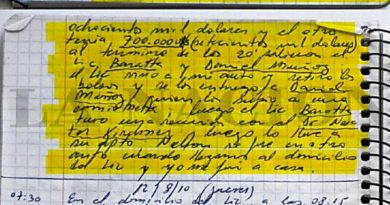 ochocientos mil dolares y el otro
tenia 700.000 u$s (setecientos mil dolares)
al termino de los 20' salieron el
Lic Baratta y Daniel Muñoz
el Lic vino a mi auto y retiro los
bolsos y se los entrego a Daniel
Muñoz quien los subio a una
camioneta y luego el Lic Baratta
tuvo una reunion con el Dr Nes
tor Kirchner y luego lo lleve a
su dpto Nelson se fue en otro
auto cuando llegamos al domicilio
del Lic y yo me fui a casa.
12/8/10 (jueves)
07:30 En el domicilio del Lic a las 08:15
LA NACION